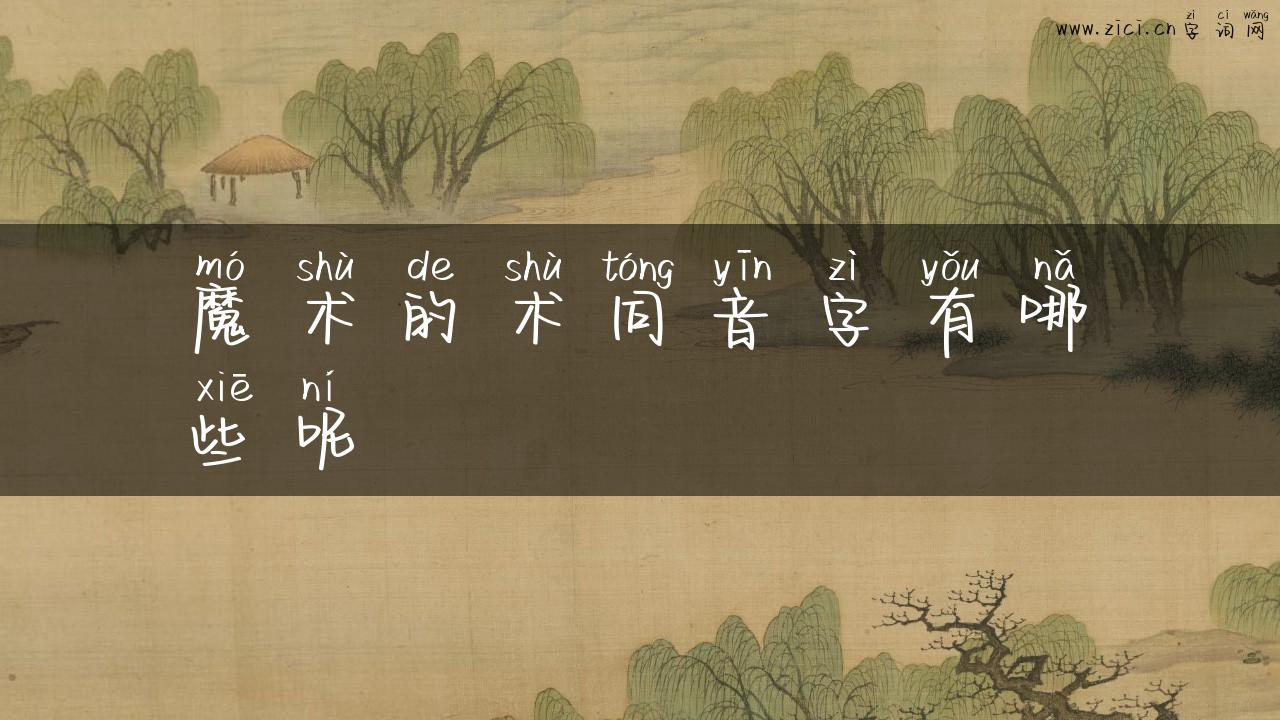 zì cí wǎng
www.zici.cn 字 词 网
mó shù de shù tóng yīn zì yǒu nǎ
魔 术 的 术 同 音 字 有 哪
xiē ní
些 呢